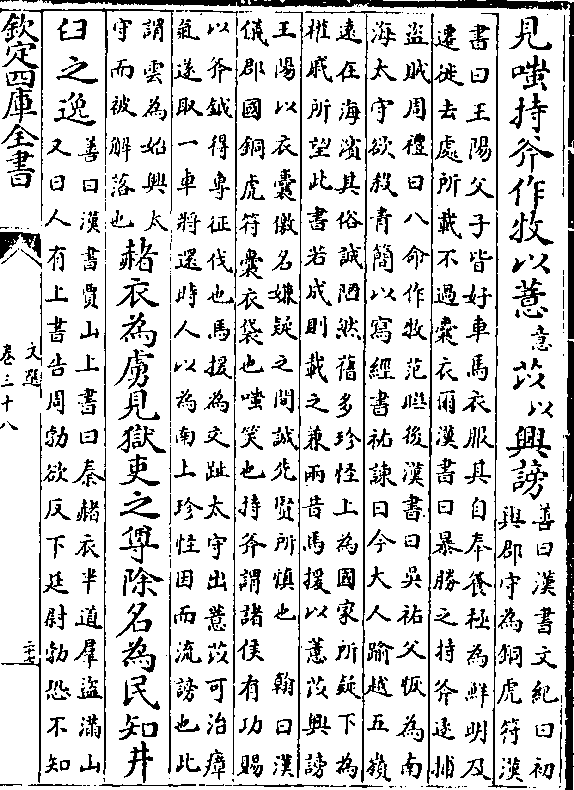 見嗤持斧作牧以薏意苡以興謗善曰漢書文紀曰初
與郡守為銅虎符漢
書曰王陽父子皆好車馬衣服其自奉養極為鮮明及
遷徙去處所載不過囊衣爾漢書曰暴勝之持斧逐捕
盜賊周禮曰八命作牧范曄後漢書曰吳祐父恢為南
海太守欲殺青簡以寫經書祐諫曰今大人踰越五嶺
遠在海濱其俗誠陋然舊多珍怪上為國家所疑下為
權戚所望此書若成則載之兼兩昔馬援以薏苡興謗
王陽以衣囊徼名嫌疑之間誠先賢所慎也　翰曰漢
儀郡國銅虎符囊衣袋也嗤笑也持斧謂諸侯有功賜
以斧鉞得專征伐也馬援為交趾太守出薏苡可治瘴
氣遂取一車將還時人以為南上珍怪因而流謗也此
謂雲為始興太
守而被解落也
赭衣為虜見獄吏之尊除名為民知井
臼之逸善曰漢書賈山上書曰秦赭衣半道羣盜滿山
又曰人有上書告周勃欲反下廷尉勃恐不知
欽定四庫全書
文選
卷三十八
二十七